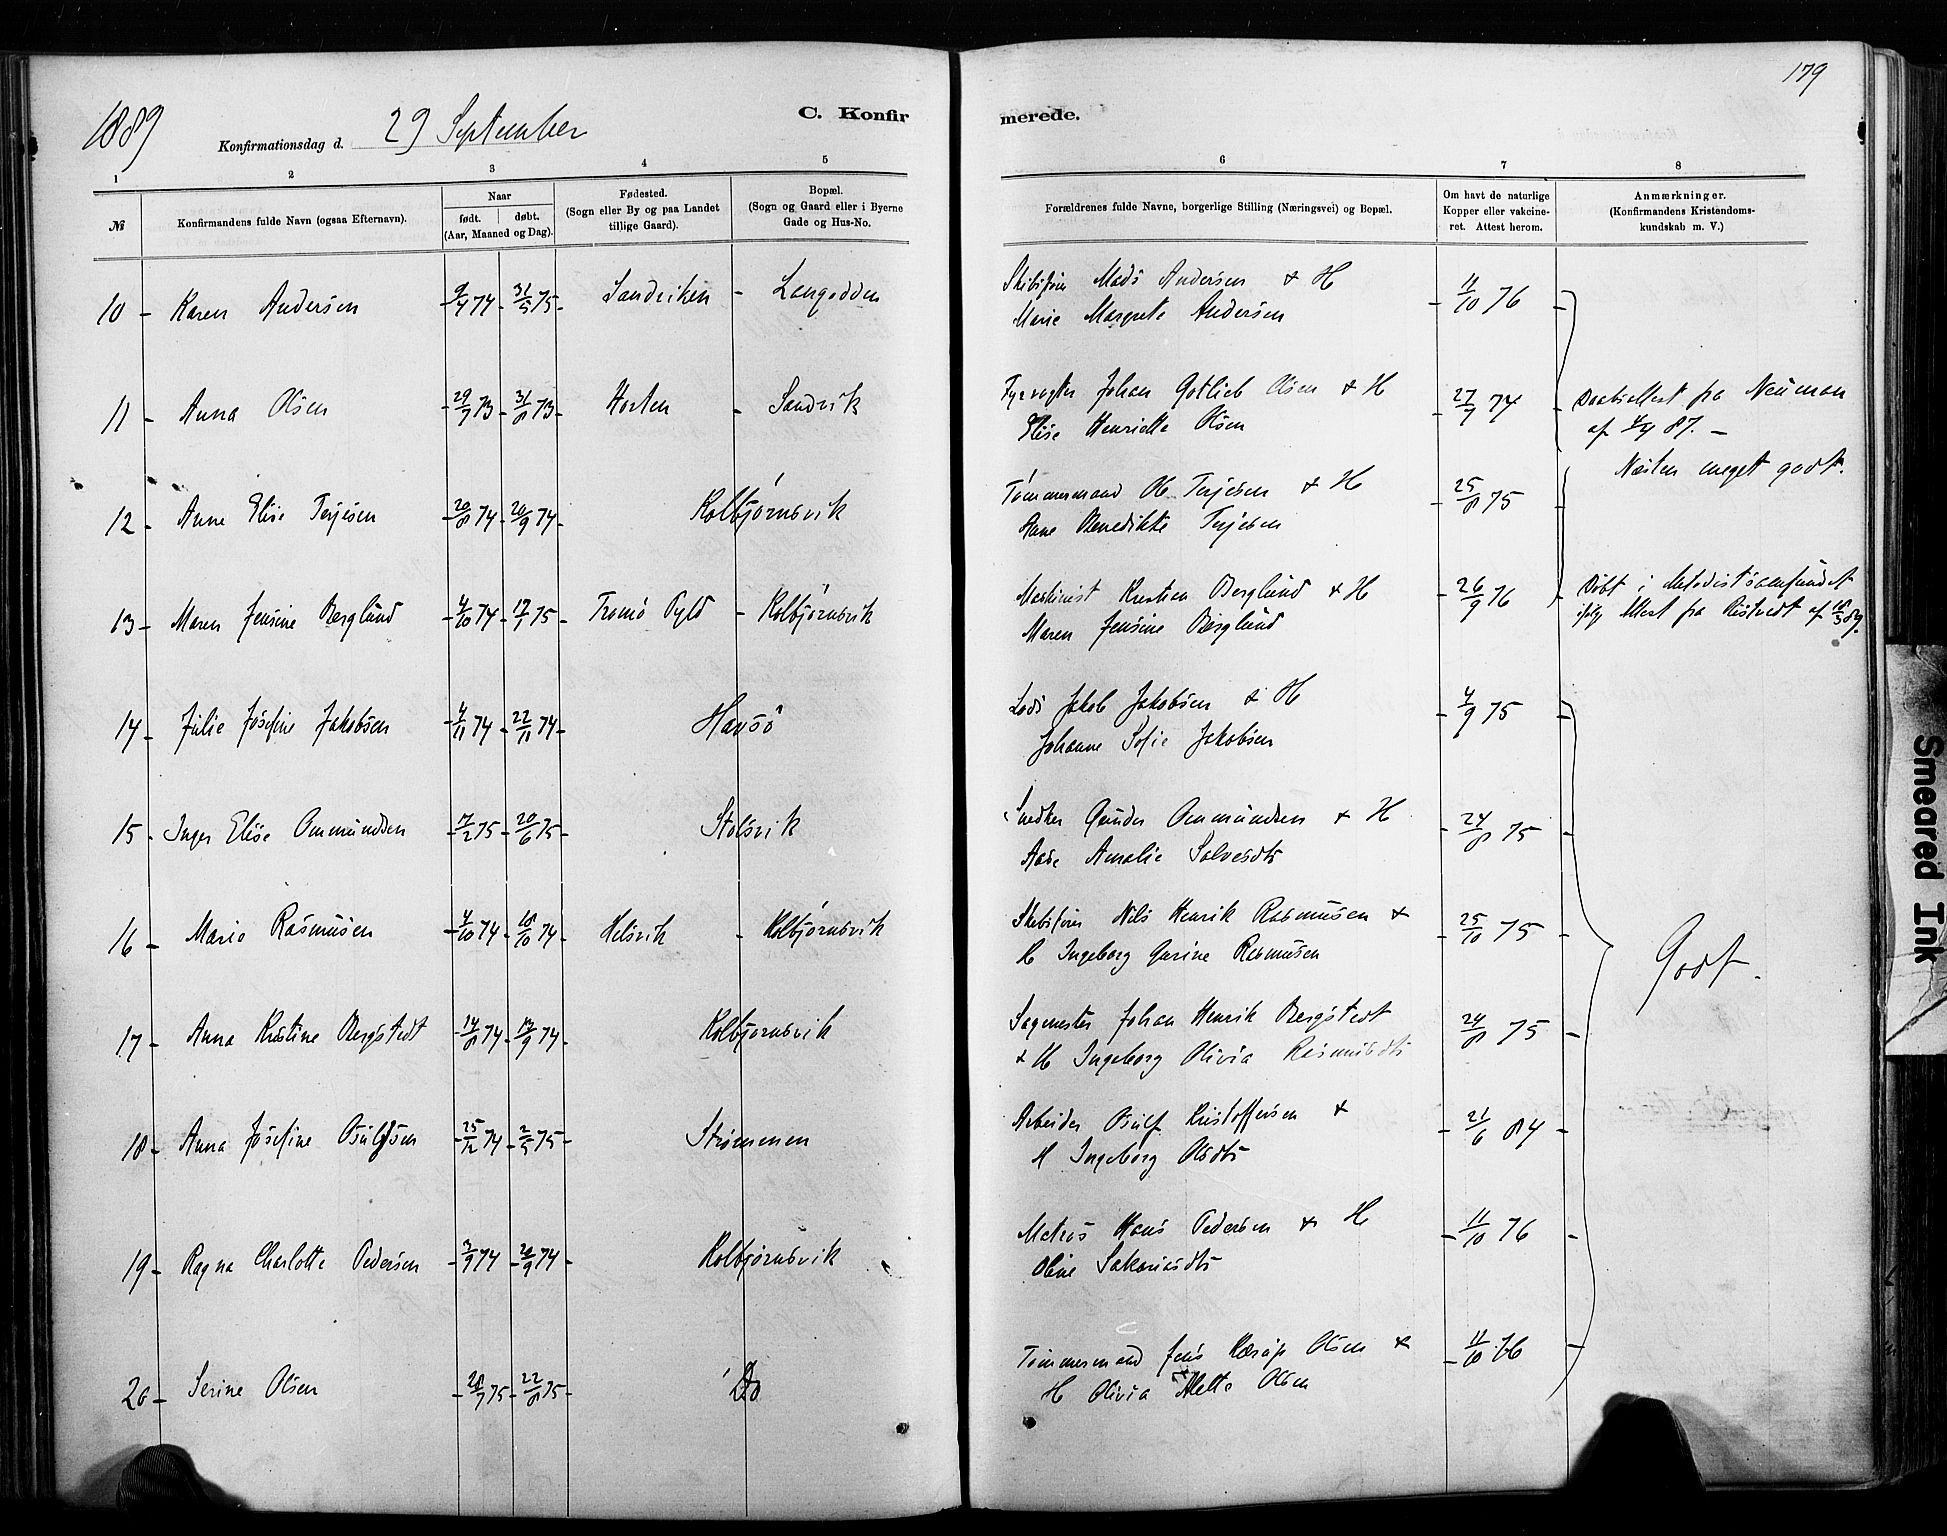 179
1889
C. Konfirmerede.
Konfirmationsdag d. 29 September
1 2 3 4 5 6 7 8
№
Konfirmandens fulde Navn (ogsaa Efternavn).
Naar
født. døbt.
(Aar, Maaned og Dag).
Fødested.
(Sogn eller By og paa Landet
tillige Gaard).
Bopæl.
(Sogn og Gaard eller i Byerne
Gade og Hus-No.
Forældrenes fulde Navne, borgerlige Stilling (Næringsvei) og Bopæl.
Om havt de naturlige
Kopper eller vakcine-
ret. Attest herom.
Anmærkninger.
(Konfirmandens Kristendoms-
kundskab m. V.)
10 - Karen Andersen - 9/4 74 - 31/5 75 - Sandviken - Langodden
Skibsfører Mads Andersen & H
Marie Margrete Andersen - 11/10 76 -
11 - Anna Olsen - 29/7 73 - 31/8 73 - Horten - Sandvik
Fyrvogter Johan Gotlieb Olsen & H
Elise Henriette Olsen - 27/7 74 -
Daabsattest fra Neuman
af 87. -
Næsten meget godt.
12 - Anne Elise Terjesen - 20/8 74 - 20/9 74 - Kolbjørnsvik
Tømmermand Ole Terjesen & H
Anne Benedikte Terjesen - 25/8 75 -
13 - Maren Jensine Berglund - 4/10 74 - 17/7 75 - Tromø Pgld - Kolbjørnsvik
Maskinist Kristian Berglund & H
Maren Jensine Berglund - 26/9 76 -
Døbt i Metodistsamfundet
ifølg Attest fra Ristvedt af 18/3 89.
14 - Julie Josefine Jakobsen - 4/11 74 - 22/11 74 - Havsö
Lods Jakob Jakobsen & H
Johanne Sofie Jakobsen - 4/9 75 -
15 - Inger Elise Ommundsen - 17/2 75 - 20/6 75 - Stølsvik
Snedker Gunder Ommundsen & H
Aase Amalie Salvesdtr - 24/8 75 -
16 - Marie Rasmusen - 4/10 74 - 18/10 74 - Helsvik - Kolbjørnsvik
Skibsfører Nils Henrik Rasmusen &
H Ingeborg Gurine Rasmusen - 25/10 75 -
Godt.
17 - Anna Kristine Bergstedt - 14/8 74 - 13/9 74 - Kolbjørnsvik
Sagmester Johan Henrik Bergstedt
& H Ingeborg Olivia Rasmusdtr - 24/8 75 -
18 - Anna Josefine Osulfsen - 25/12 74 - 2/5 75 - Strømmen
Arbeider Osulf Kristoffersen &
H Ingeborg Olsdtr - 21/6 84 -
19 - Ragna Charlotte Pedersen - 3/9 74 - 20/9 74 - Kolbjørnsvik
Matros Hans Pedersen & H
Oline Sakariasdtr - 11/10 76 -
20 - Serine Olsen - 28/7 75 - 22/8 75 - Do
Tømmermand Jens Olsen &
H Olivia Mette Olsen - 11/10 76 -
Smeared Ink